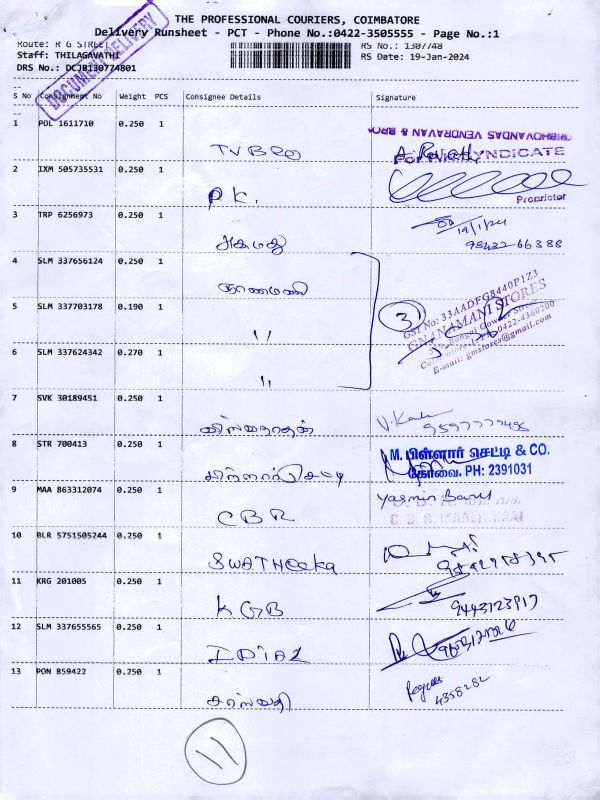 THE PROFESSIONAL COURIERS, COIMBATORE
Delivery Runsheet - PCT - Phone No.:0422-3505555 - Page No.:1
Route: R G STREET
RS No.: 1307748
Staff: THILAGAVATHI
RS Date: 19-Jan-2024
DRS No.: DCJB130774801
DOCUMENT DELIVERY
S No Consignment No Weight PCS Consignee Details Signature
1 POL 1611710 0.250 1
TVBRO
2 IXM 505735531 0.250 1
SYNDICATE
P.K.
Proprietor
3 TRP 6256973 0.250 1
19/1/24
98422-66388
4 SLM 337656124 0.250 1
ஞானமணி
3
GST No: 33AADFG8440P1Z3
GNANAMANI STORES
5 SLM 337703178 0.190 1
"
0422-4360200
E-mail: gmstores@gmail.com
6 SLM 337624342 0.270 1
"
7 SVK 30189451 0.250 1
8 STR 700413 0.250 1
M. பிள்ளார் செட்டி & CO.
கோவை. PH: 2391031
9 MAA 863312074 0.250 1
Yasmin Banu
CBR
10 BLR 5751505244 0.250 1
SWATHeeka
11 KRG 201005 0.250 1
9443123917
KGB
12 SLM 337655565 0.250 1
13 PON 859422 0.250 1
4358282
சரஸ்வதி
11